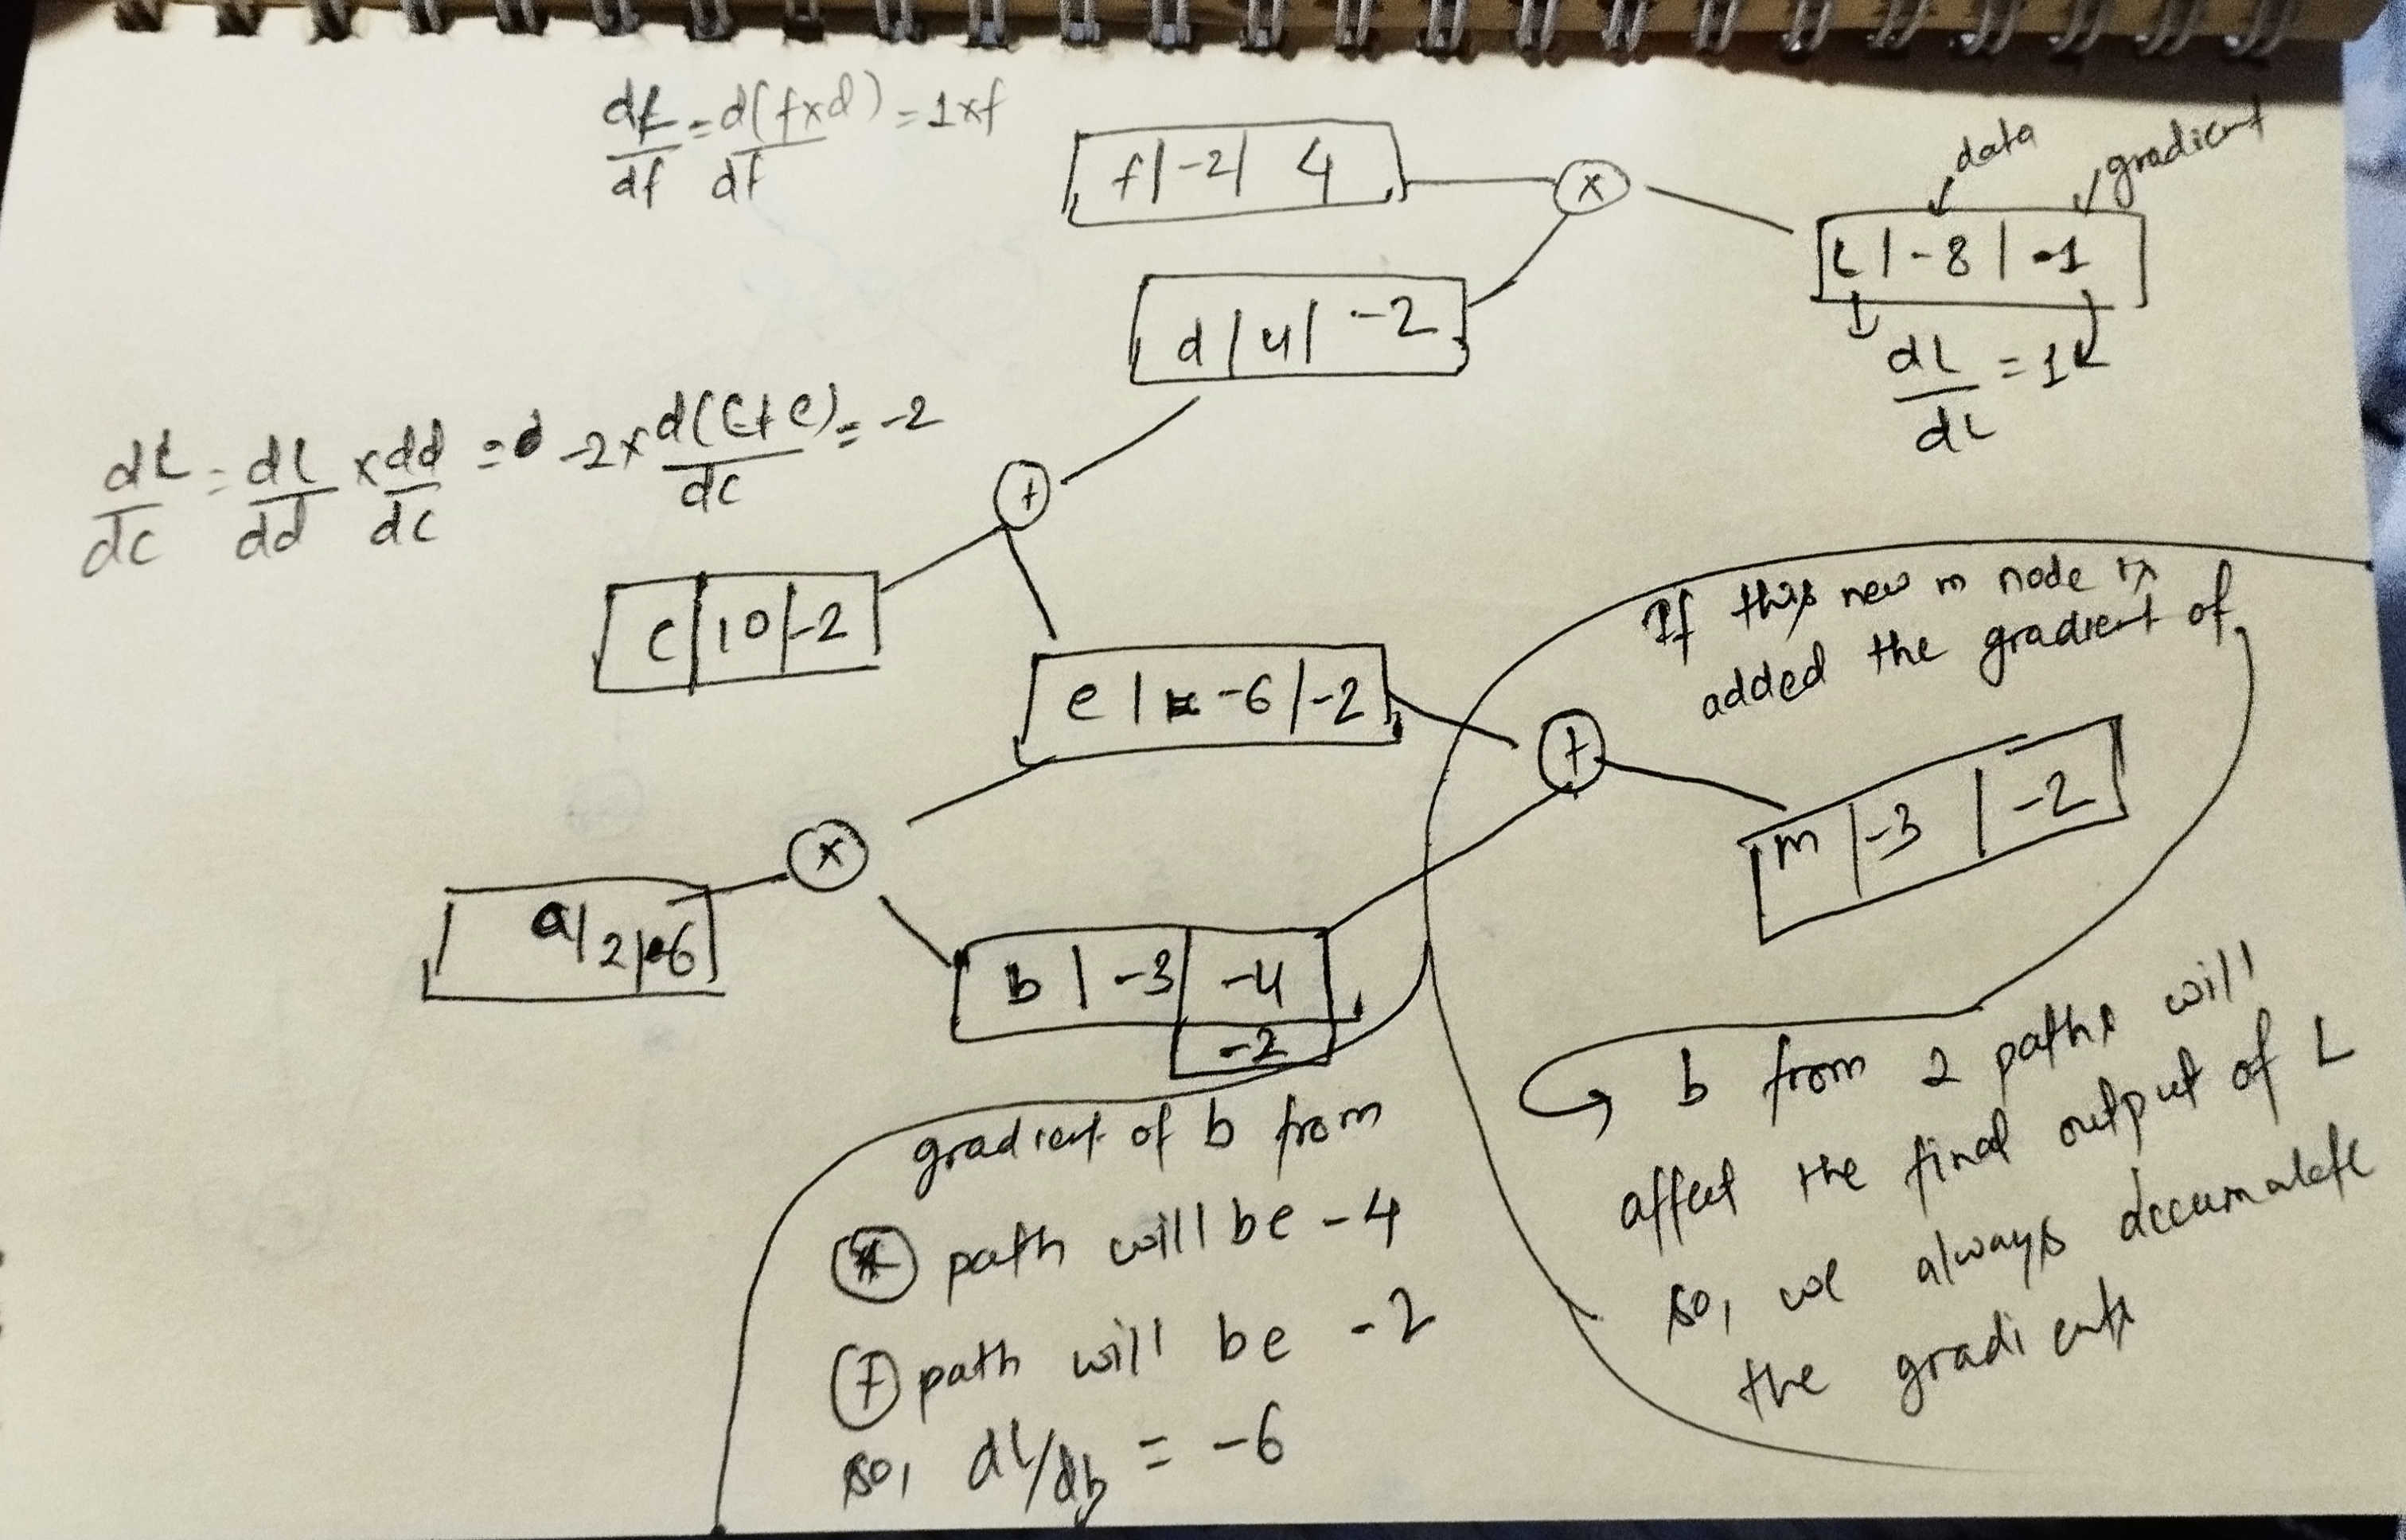 dL/df = d(f×d)/df = 1×f
f | -2 | 4
×
data
gradient
L | -8 | -1
dL/dL = 1
d | 4 | -2
dL/dc = dL/dd × dd/dc = -2 × d(c+e)/dc = -2
+
c | 10 | -2
e | -6 | -2
If this new m node is
added the gradient of
+
m | -3 | -2
×
a | 2 | 6
b | -3 | -4
-2
b from 2 paths will
affect the final output of L
so, we always accumalate
the gradients
gradient of b from
* path will be -4
+ path will be -2
so, dL/db = -6